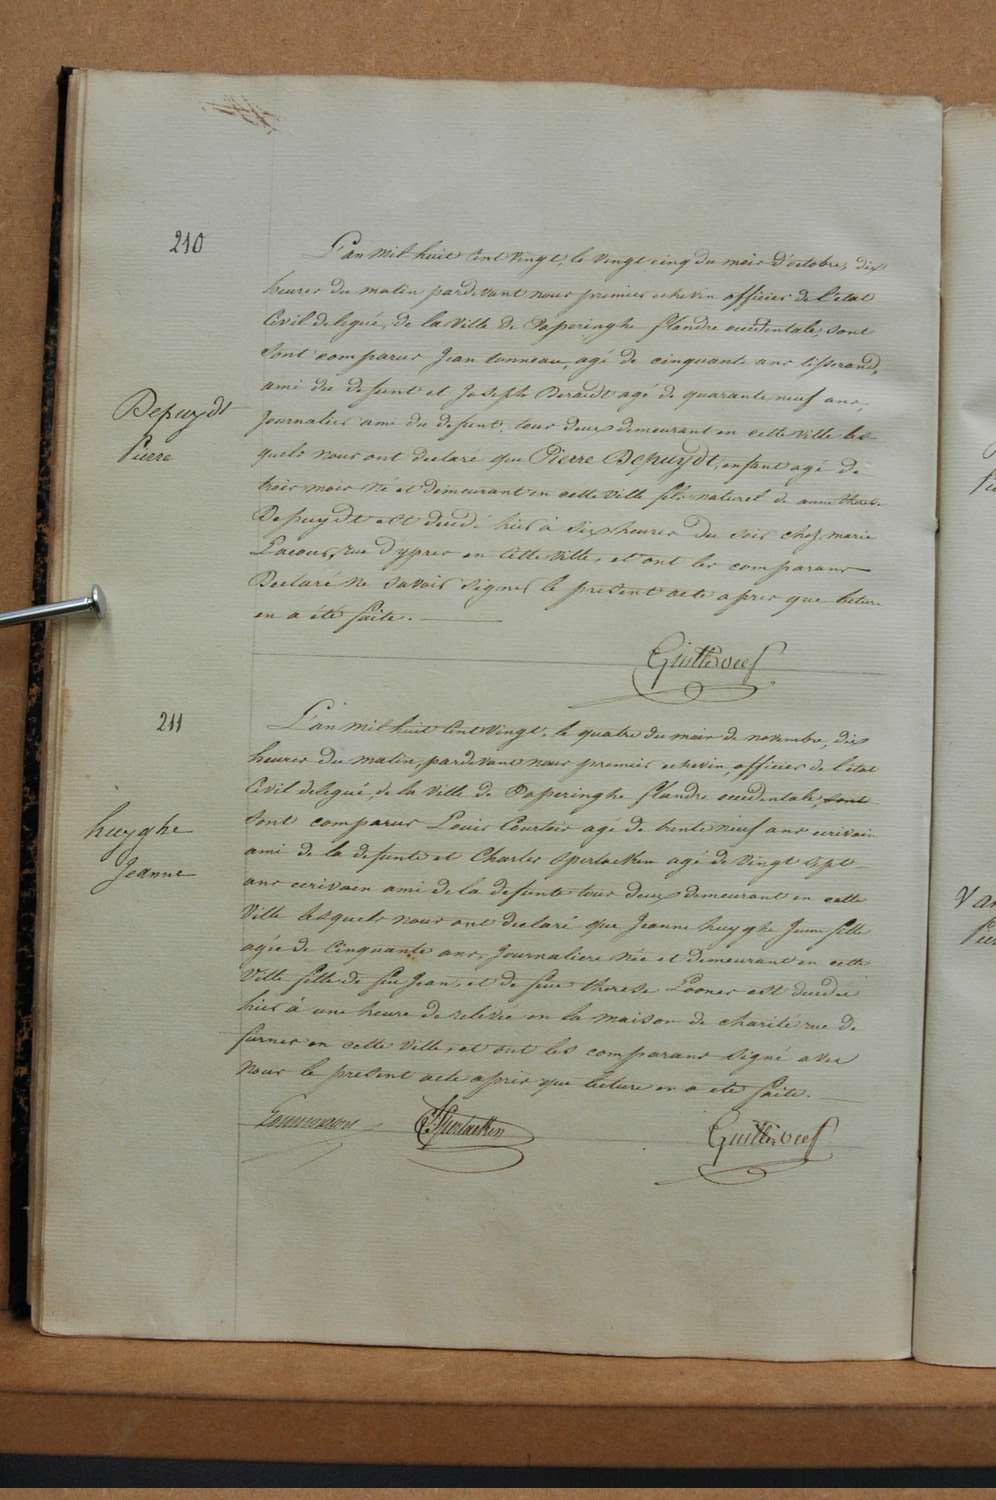 210
L'an mil huit cent vingt, le vingt cinq du mois d'octobre, dix
heures du matin pardevant nous premier echevin officier de l'etat
Civil delegué, de la ville de Poperinghe flandre occidentale, sont
Sont comparus Jean tonneau, agé de cinquante ans tisserand,
ami du defunt et Joseph agé de quarante neuf ans,
Journalier ami du defunt, tous deux demeurant en cette ville les
quels nous ont declaré que Pierre Depuydt, enfant agé de
trois mois né et demeurant en cette ville fils naturel de anne therese
Depuydt est decedé hier à six heures du soir chez marie
rue d'ypres en cette ville, et ont les comparans
Declaré ne savoir signer le present acte apres que lecture
en a été faite.
Depuydt
Pierre
211
L'an mil huit cent vingt, le quatre du mois de novembre, dix
heures du matin, pardevant nous premier echevin, officier de l'etat
Civil delegué, de la ville de Poperinghe flandre occidentale sont
Sont comparus Louis Courtois agé de trente neuf ans ecrivain
ami de la defunte et Charles Sperlaeken agé de vingt sept
ans ecrivain ami de la defunte tous deux demeurant en cette
Ville lesquels nous ont declaré que Jeanne huyghe Jeune fille
agée de Cinquante ans, Journaliere née et demeurant en cette
Ville fille de feu Jean, et de feue therese Looner est decedee
hier à une heure de relevée en la maison de charité rue de
furnes en cette ville, et ont les comparans signé avec
nous le present acte apres que lecture en a eté faite.
huyghe
Jeanne
Sperlaeken